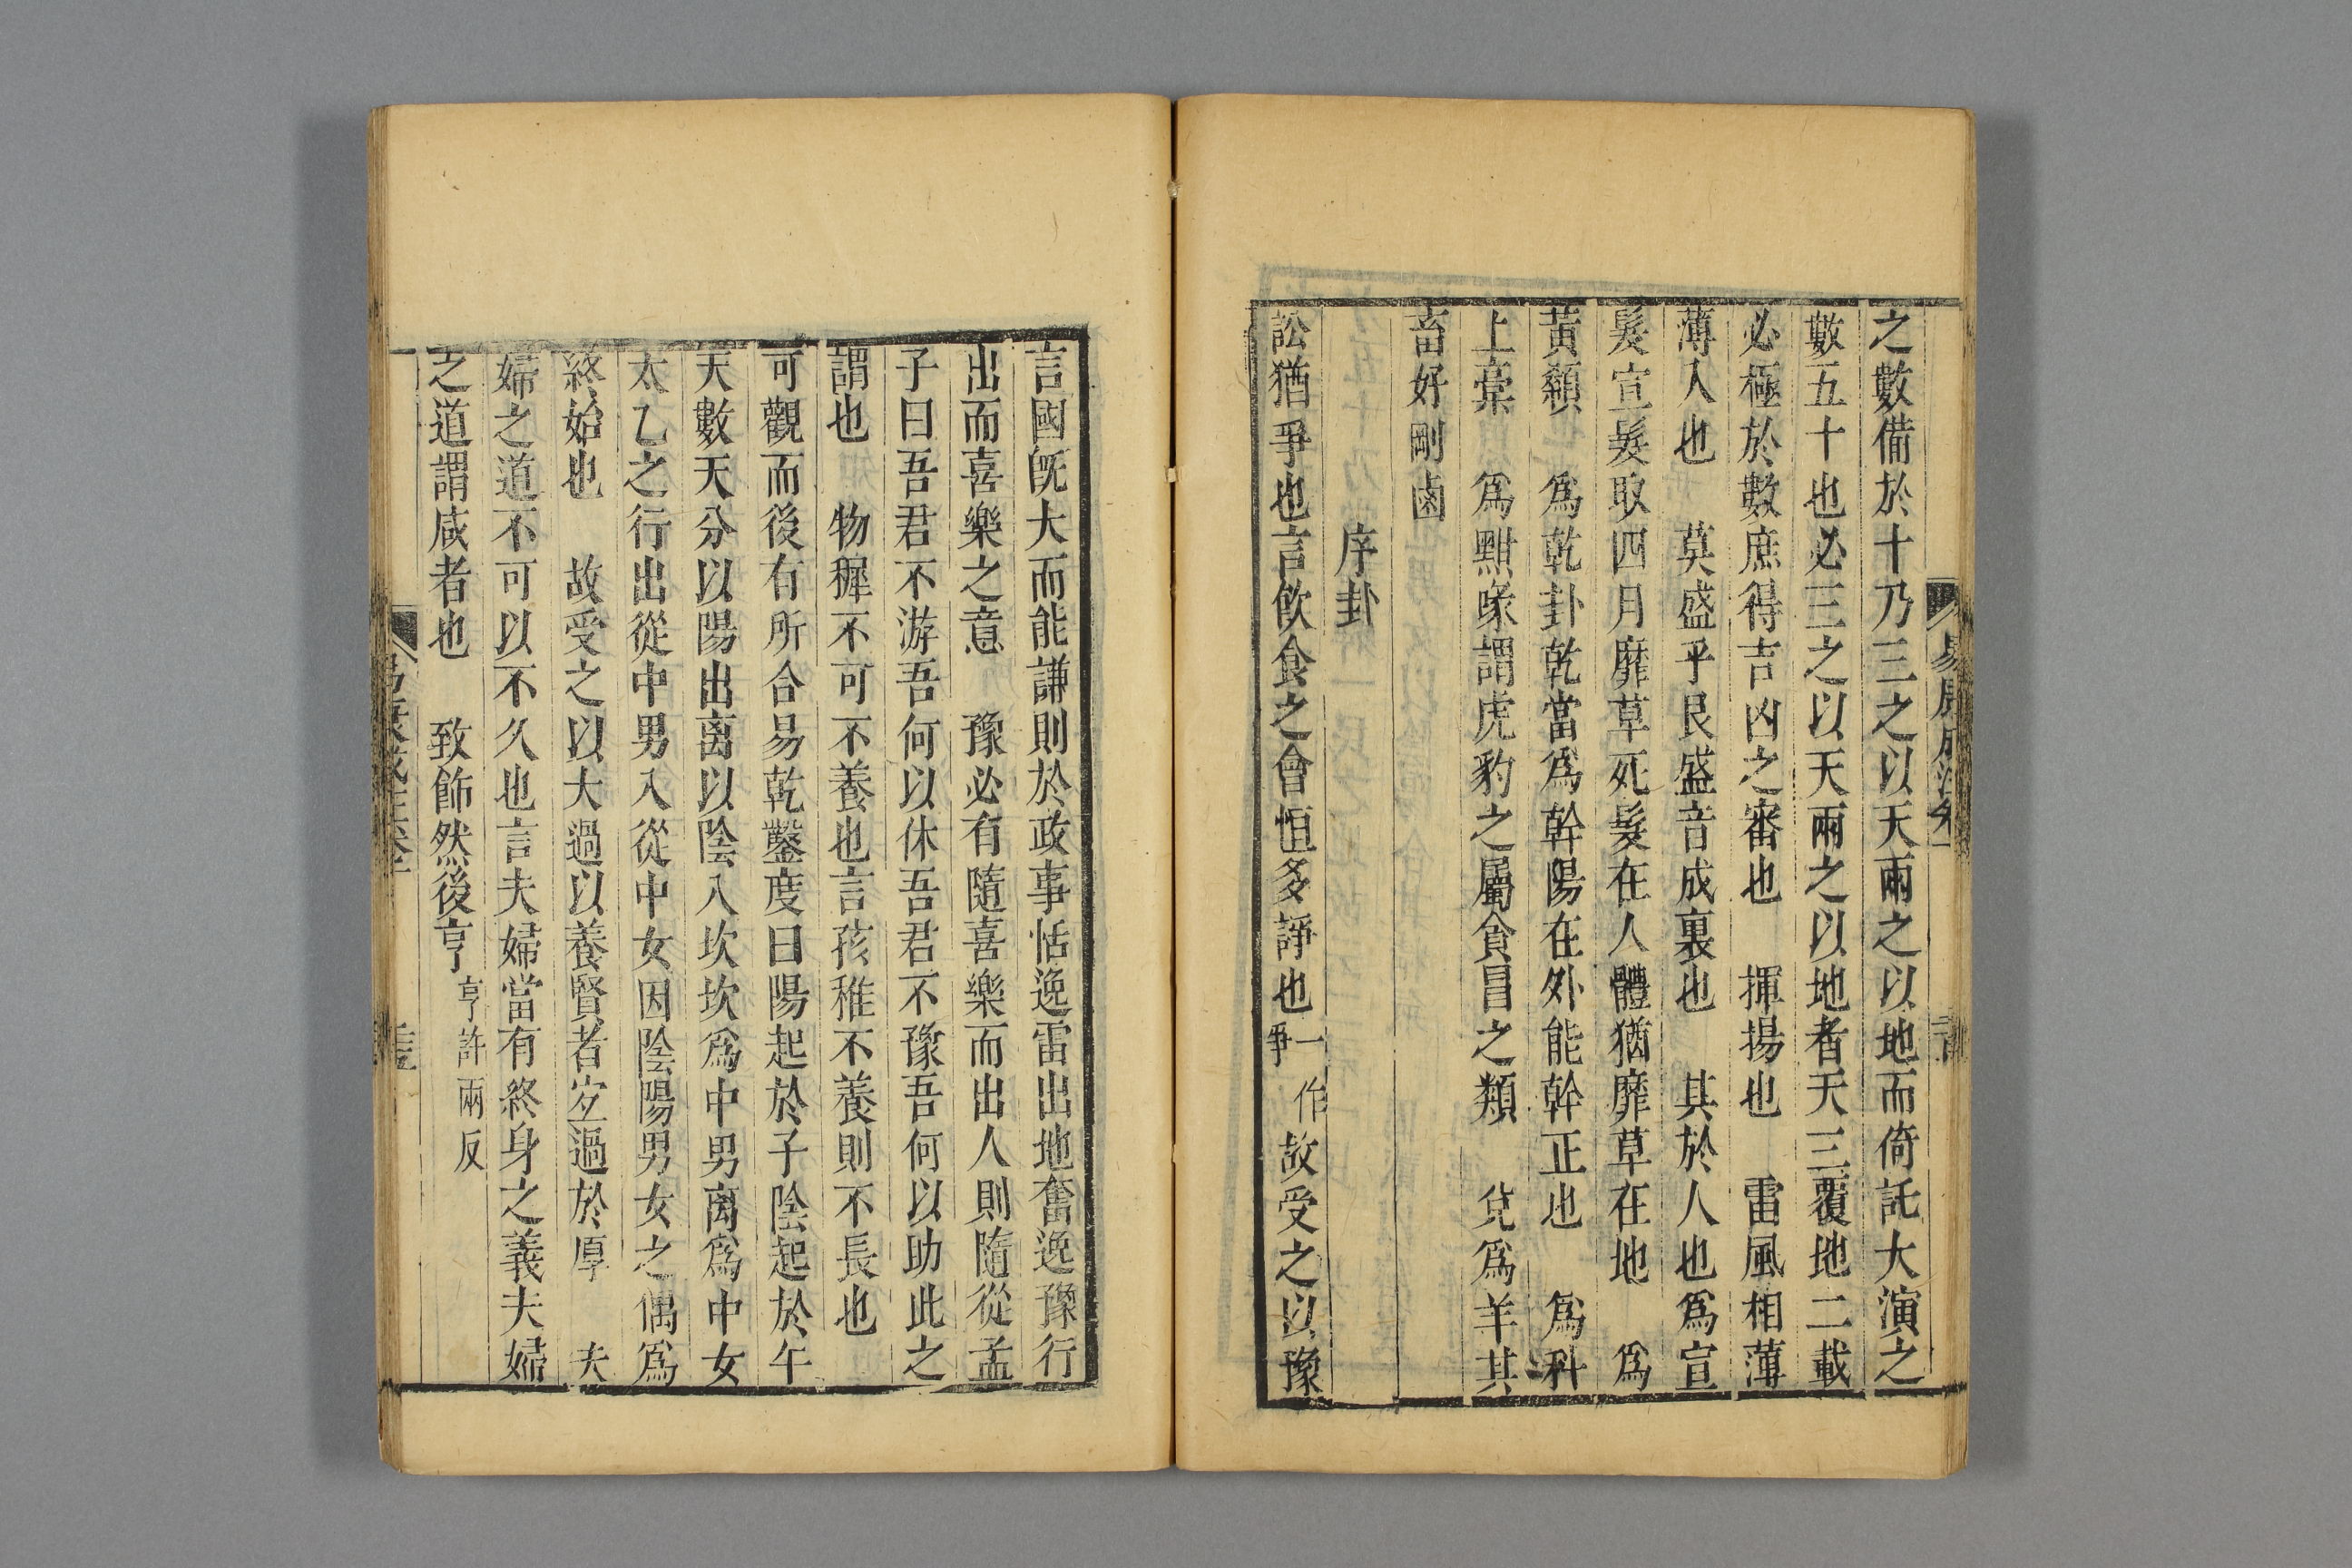 之數備於十乃三之以天兩之以地而倚託大演之
數五十也必三之以天兩之以地者天三覆地二載
必極於數庶得吉凶之審也　揮揚也　雷風相薄
薄入也　莫盛乎艮盛音成裏也　其於人也爲宣
髮宣髮取四月靡草死髮在人體猶靡草在地　爲
黃顙　爲乾卦乾當爲幹陽在外能幹正也　爲科
上槀　爲黔喙謂虎豹之屬食冒之類　兌爲羊其
畜好剛鹵
序卦
訟猶爭也言飲食之會恒多諍也一作爭故受之以豫
言國旣大而能謙則於政事恬逸雷出地奮逸豫行
出而喜樂之意　豫必有隨喜樂而出人則隨從孟
子曰吾君不游吾何以休吾君不豫吾何以助此之
謂也　物穉不可不養也言孩稚不養則不長也
可觀而後有所合易乾鑿度曰陽起於子陰起於午
天數天分以陽出离以陰入坎坎爲中男离爲中女
太乙之行出從中男入從中女因陰陽男女之偶爲
終始也　故受之以大過以養賢者宜過於厚　夫
婦之道不可以不久也言夫婦當有終身之義夫婦
之道謂咸者也　致飾然後亨亨許兩反